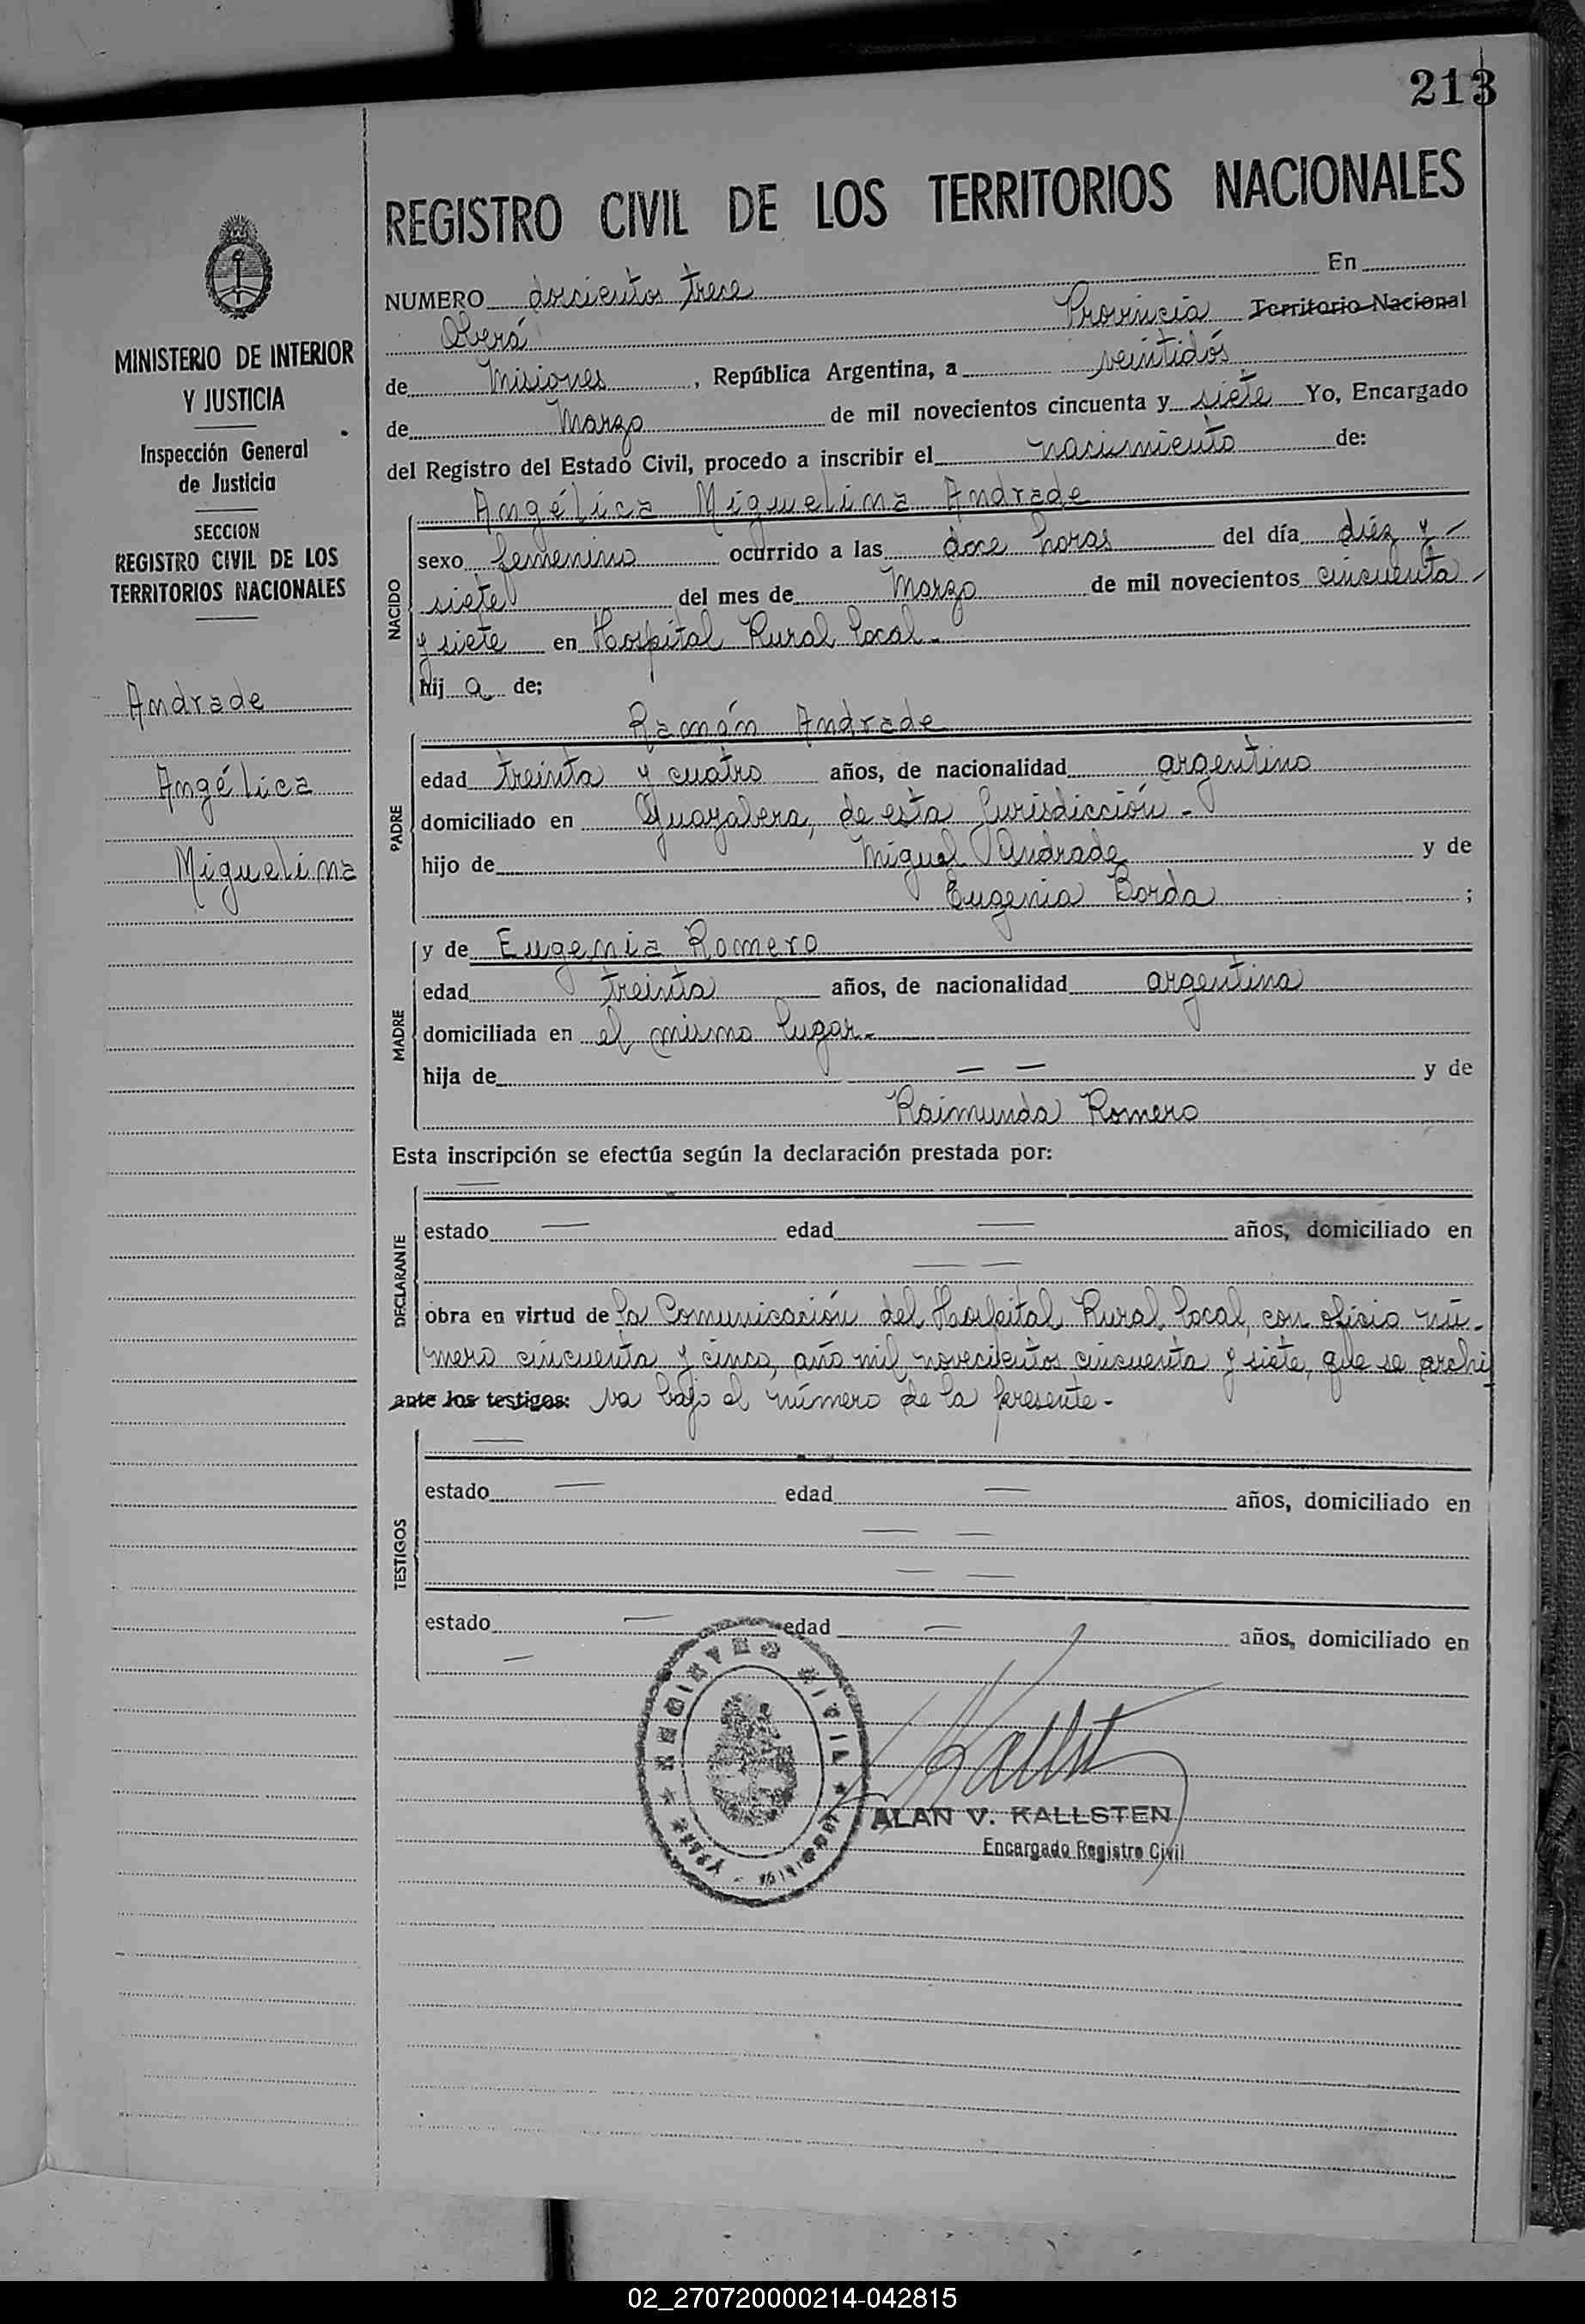 213
REGISTRO CIVIL DE LOS TERRITORIOS NACIONALES
MINISTERIO DE INTERIOR
Y JUSTICIA
Inspección General
de Justicia
SECCION
REGISTRO CIVIL DE LOS
TERRITORIOS NACIONALES
Andrade
Angélica
Miguelina
NUMERO doscientos trece En
Oberá Provincia Territorio Nacional
de Misiones, República Argentina, a veintidós
de Marzo de mil novecientos cincuenta y siete Yo, Encargado
del Registro del Estado Civil, procedo a inscribir el nacimiento de:
NACIDO
Angélica Miguelina Andrade
sexo femenino ocurrido a las doce horas del día diez y -
siete del mes de Marzo de mil novecientos cincuenta -
y siete en Hospital Rural Local -
hij a de;
PADRE
Ramón Andrade
edad treinta y cuatro años, de nacionalidad argentino
domiciliado en Guayabera, de esta Jurisdicción -
hijo de Miguel Andrade y de
Eugenia Borda ;
MADRE
y de Eugenia Romero
edad treinta años, de nacionalidad argentina
domiciliada en el mismo lugar -
hija de — — y de
Raimunda Romero
Esta inscripción se efectúa según la declaración prestada por:
DECLARANTE
—
estado — edad — años, domiciliado en
— —
obra en virtud de la Comunicación del Hospital Rural Local, con oficio nú-
mero cincuenta y cinco, año mil novecientos cincuenta y siete, que se archi
ante los testigos: va bajo el número de la presente -
TESTIGOS
—
estado — edad — años, domiciliado en
— —
— —
estado — edad — años, domiciliado en
—
REGISTRO CIVIL
ALAN V. KALLSTEN
Encargado Registro Civil
02_270720000214-042815